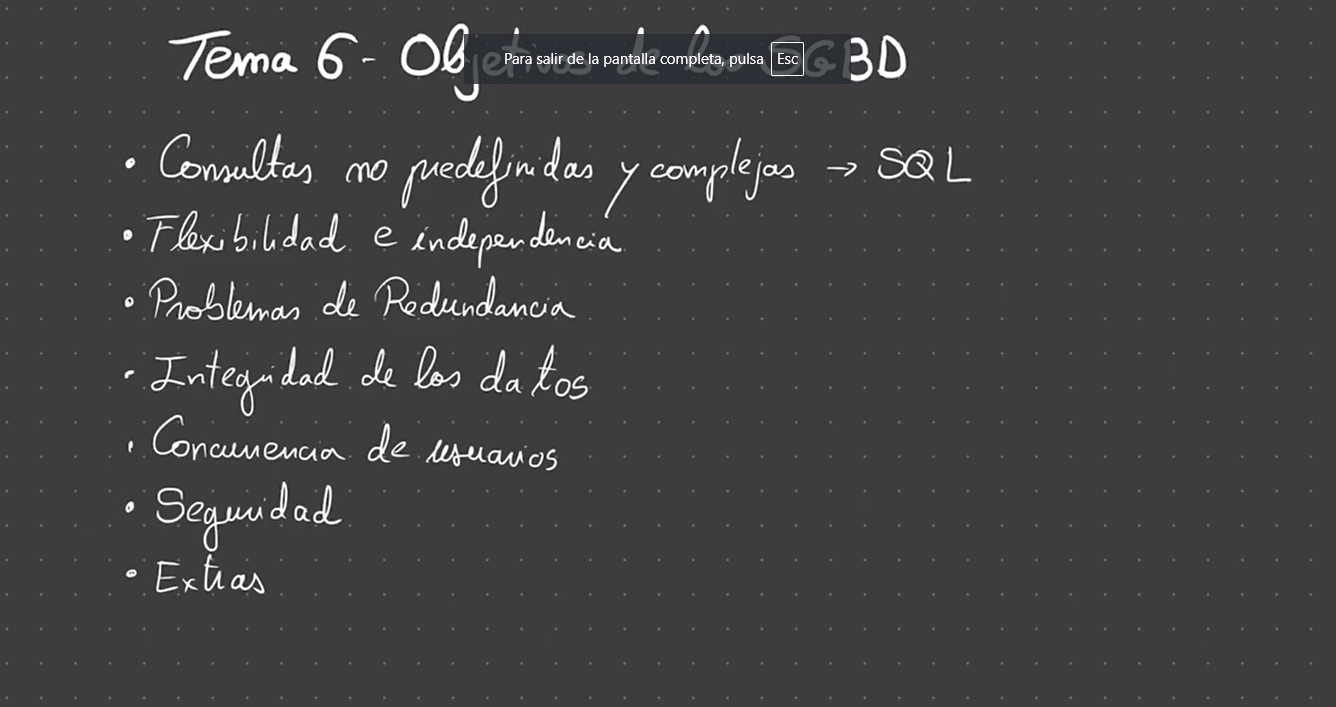 Tema 6 - Objetivos de los SGBD
Para salir de la pantalla completa, pulsa Esc
• Consultas no predefinidas y complejas → SQL
• Flexibilidad e independencia
• Problemas de Redundancia
• Integridad de los datos
• Concurrencia de usuarios
• Seguridad
• Extras